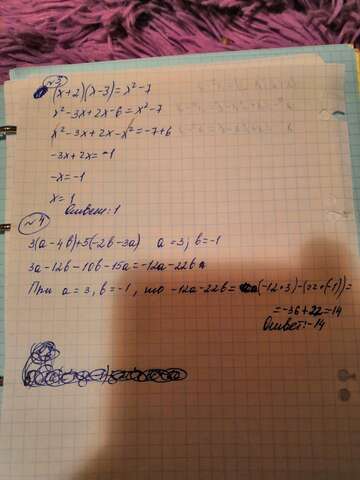 №3
(x+2)(x-3)=x²-7
x²-3x+2x-6=x²-7
x²-3x+2x-x²=-7+6
-3x+2x=-1
-x=-1
x=1
Ответ: 1
№4
3(a-4b)+5(-2b-3a) a=3; b=-1
3a-12b-10b-15a=-12a-22b
При a=3, b=-1, то -12a-22b=(-12·3)-(22·(-1))=
=-36+22=-14
Ответ: -14